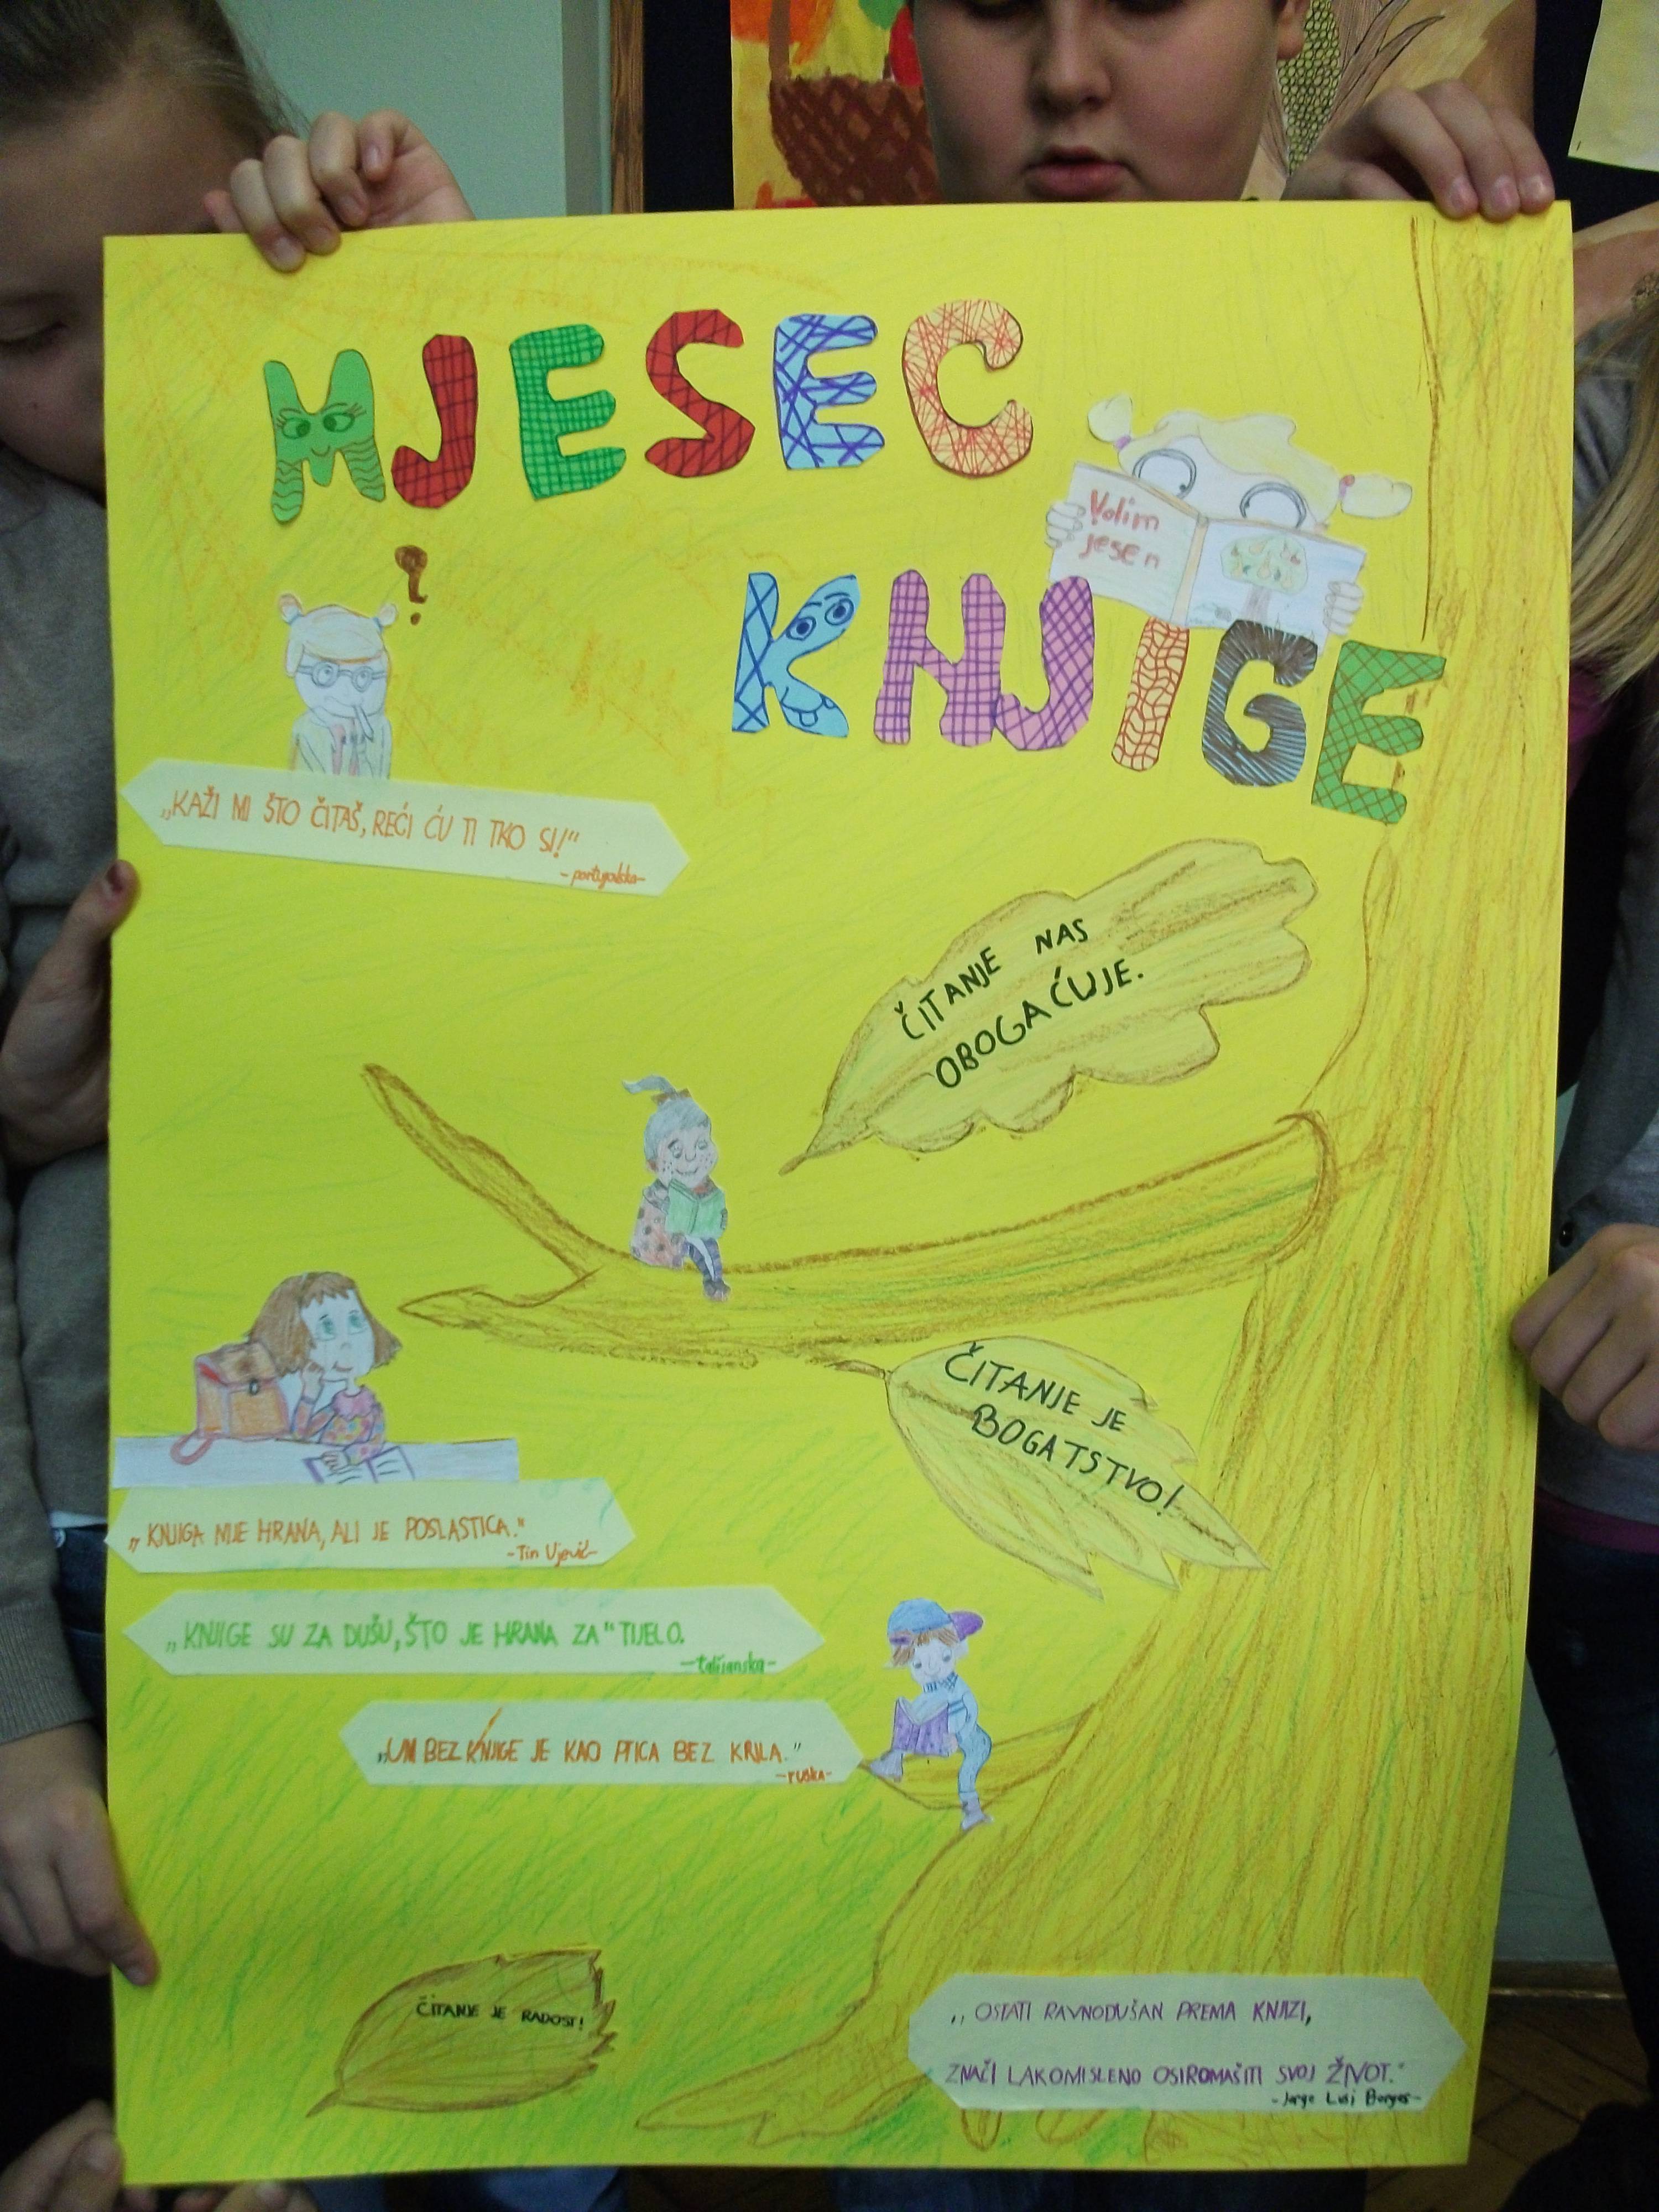 MJESEC
KNJIGE
Volim
jesen
?
„KAŽI MI ŠTO ČITAŠ, REĆI ĆU TI TKO SI!“
-portugalska-
ČITANJE NAS
OBOGAĆUJE.
ČITANJE JE
BOGATSTVO!
„KNJIGA NIJE HRANA, ALI JE POSLASTICA.“
-Tin Ujević-
„KNJIGE SU ZA DUŠU, ŠTO JE HRANA ZA“ TIJELO.
-talijanska-
„UM BEZ KNJIGE JE KAO PTICA BEZ KRILA.”
-ruska-
ČITANJE JE RADOST!
„OSTATI RAVNODUŠAN PREMA KNJIZI,
ZNAČI LAKOMISLENO OSIROMAŠITI SVOJ ŽIVOT.“
-Jorge Lusi Borges-